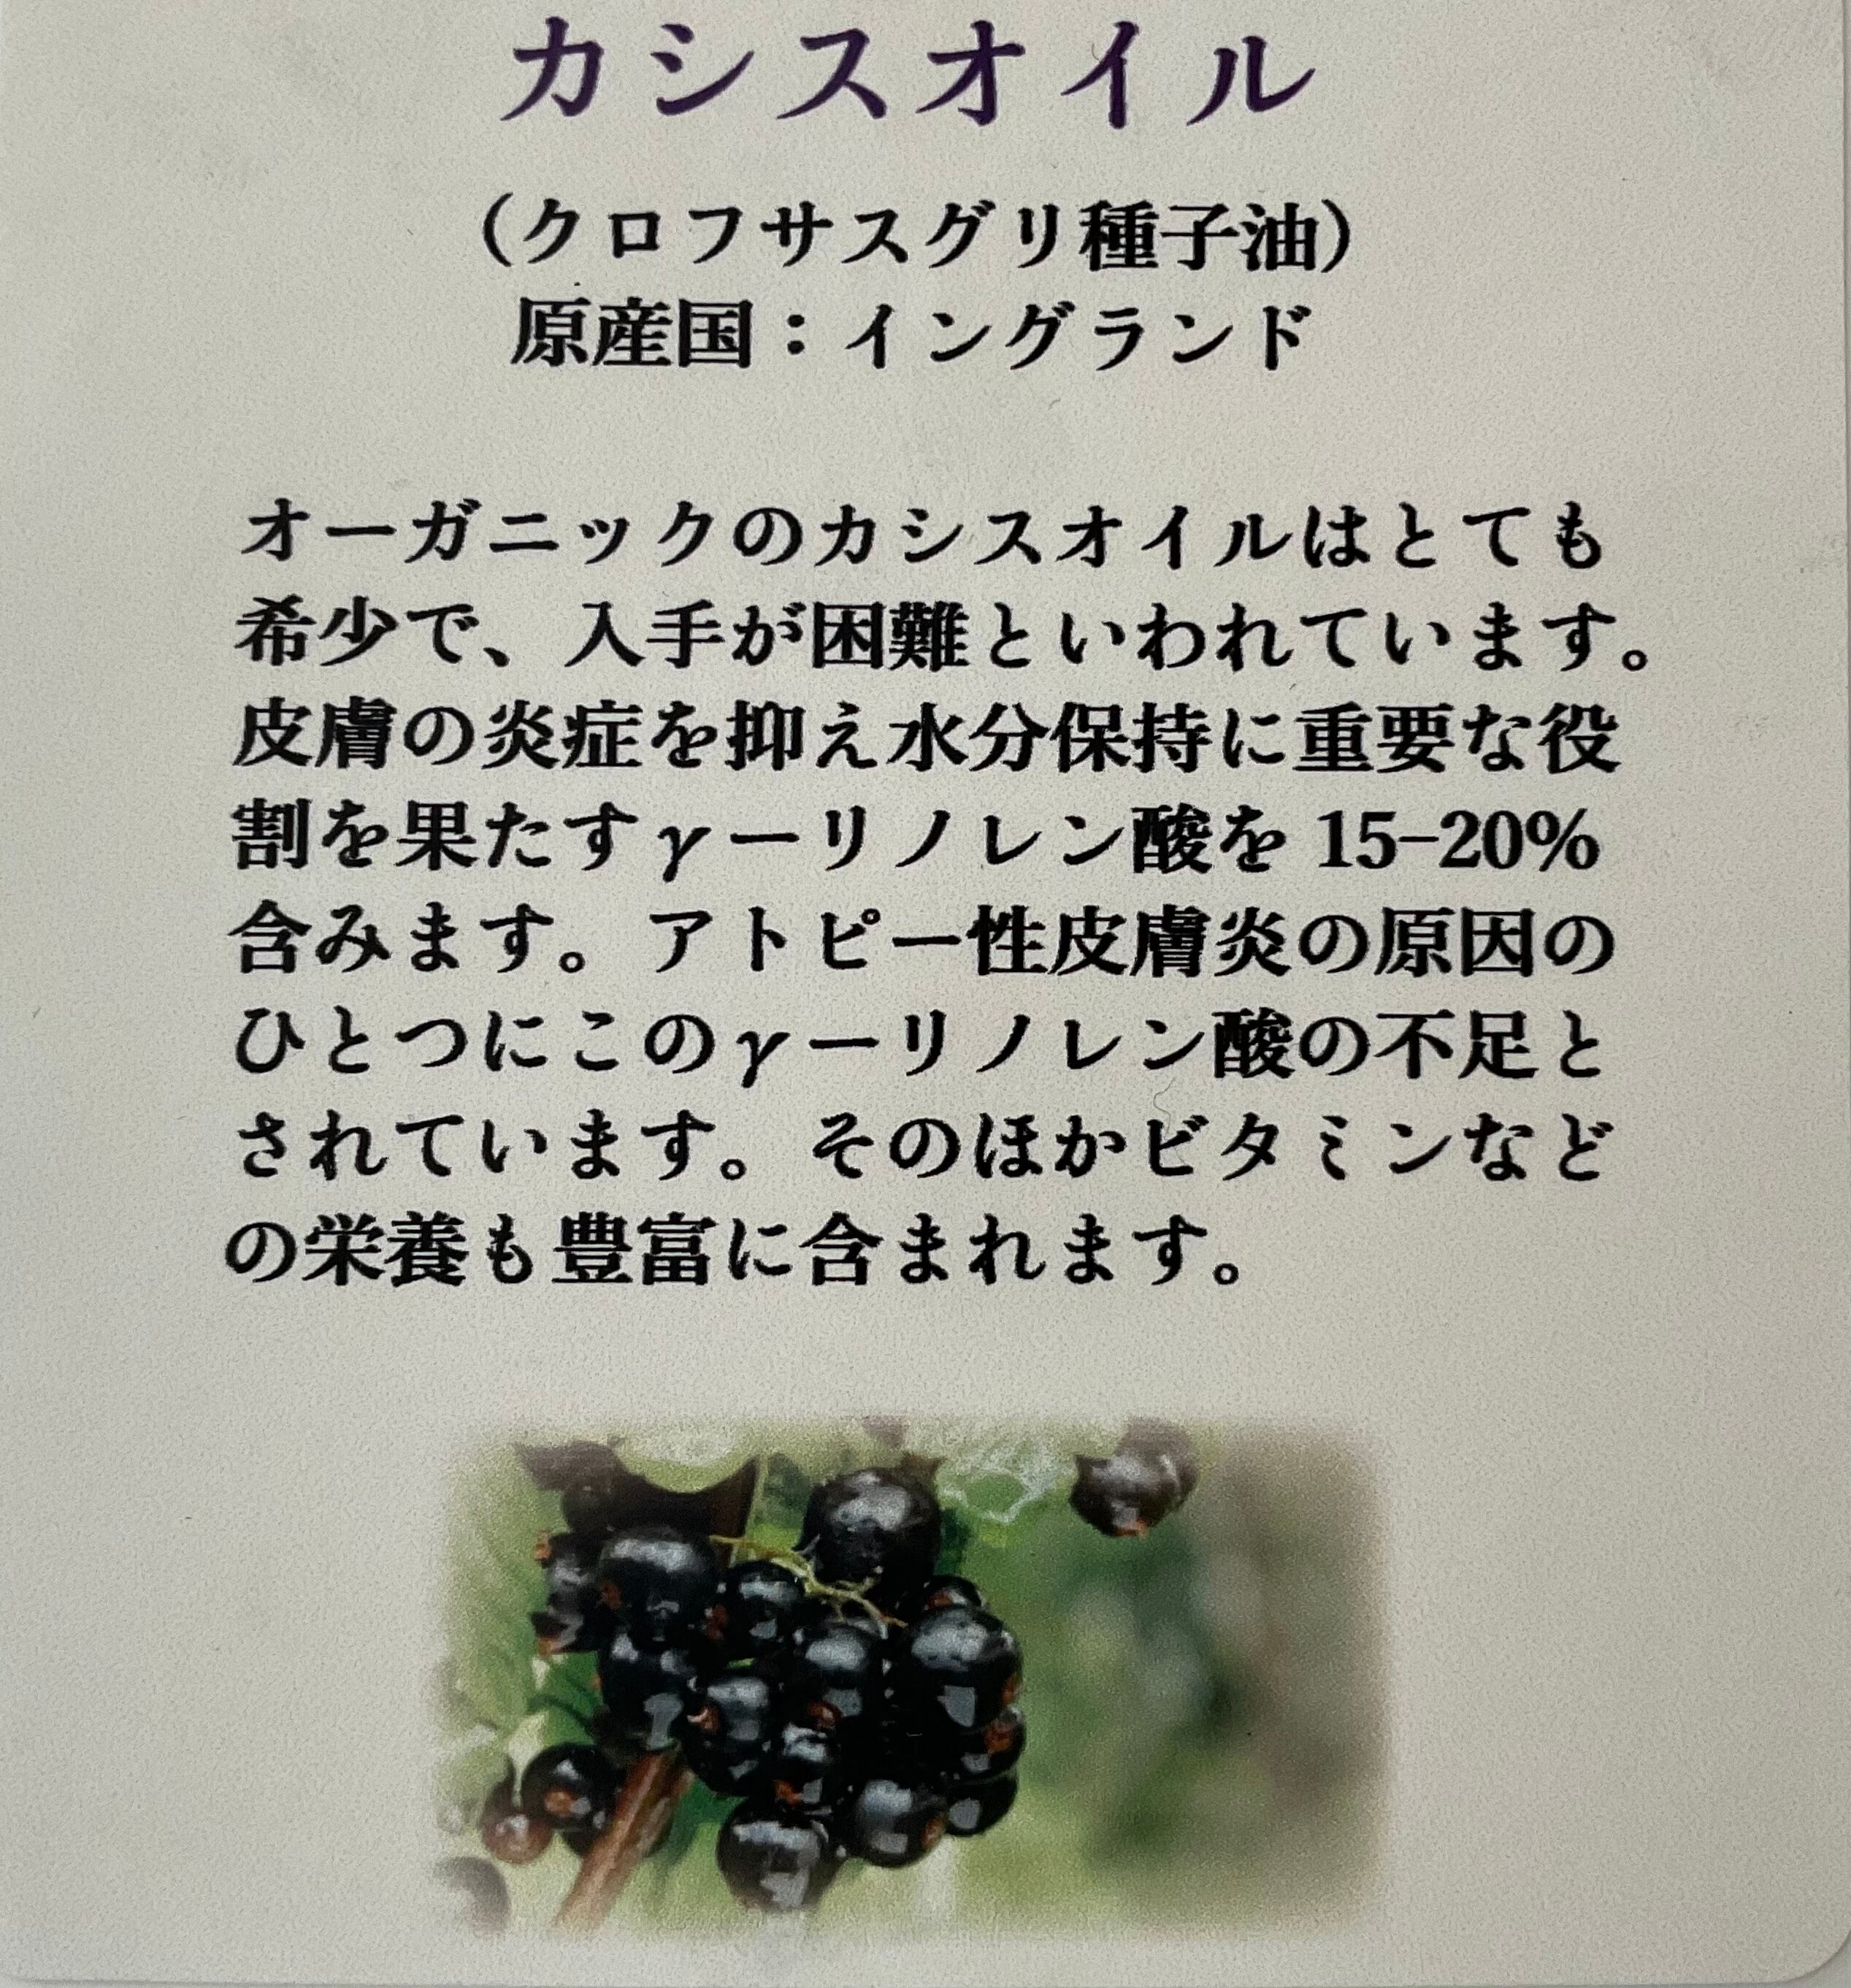 カシスオイル
（クロフサスグリ種子油）
原産国：イングランド
オーガニックのカシスオイルはとても
希少で、入手が困難といわれています。
皮膚の炎症を抑え水分保持に重要な役
割を果たすγーリノレン酸を 15-20%
含みます。アトピー性皮膚炎の原因の
ひとつにこのγーリノレン酸の不足と
されています。そのほかビタミンなど
の栄養も豊富に含まれます。